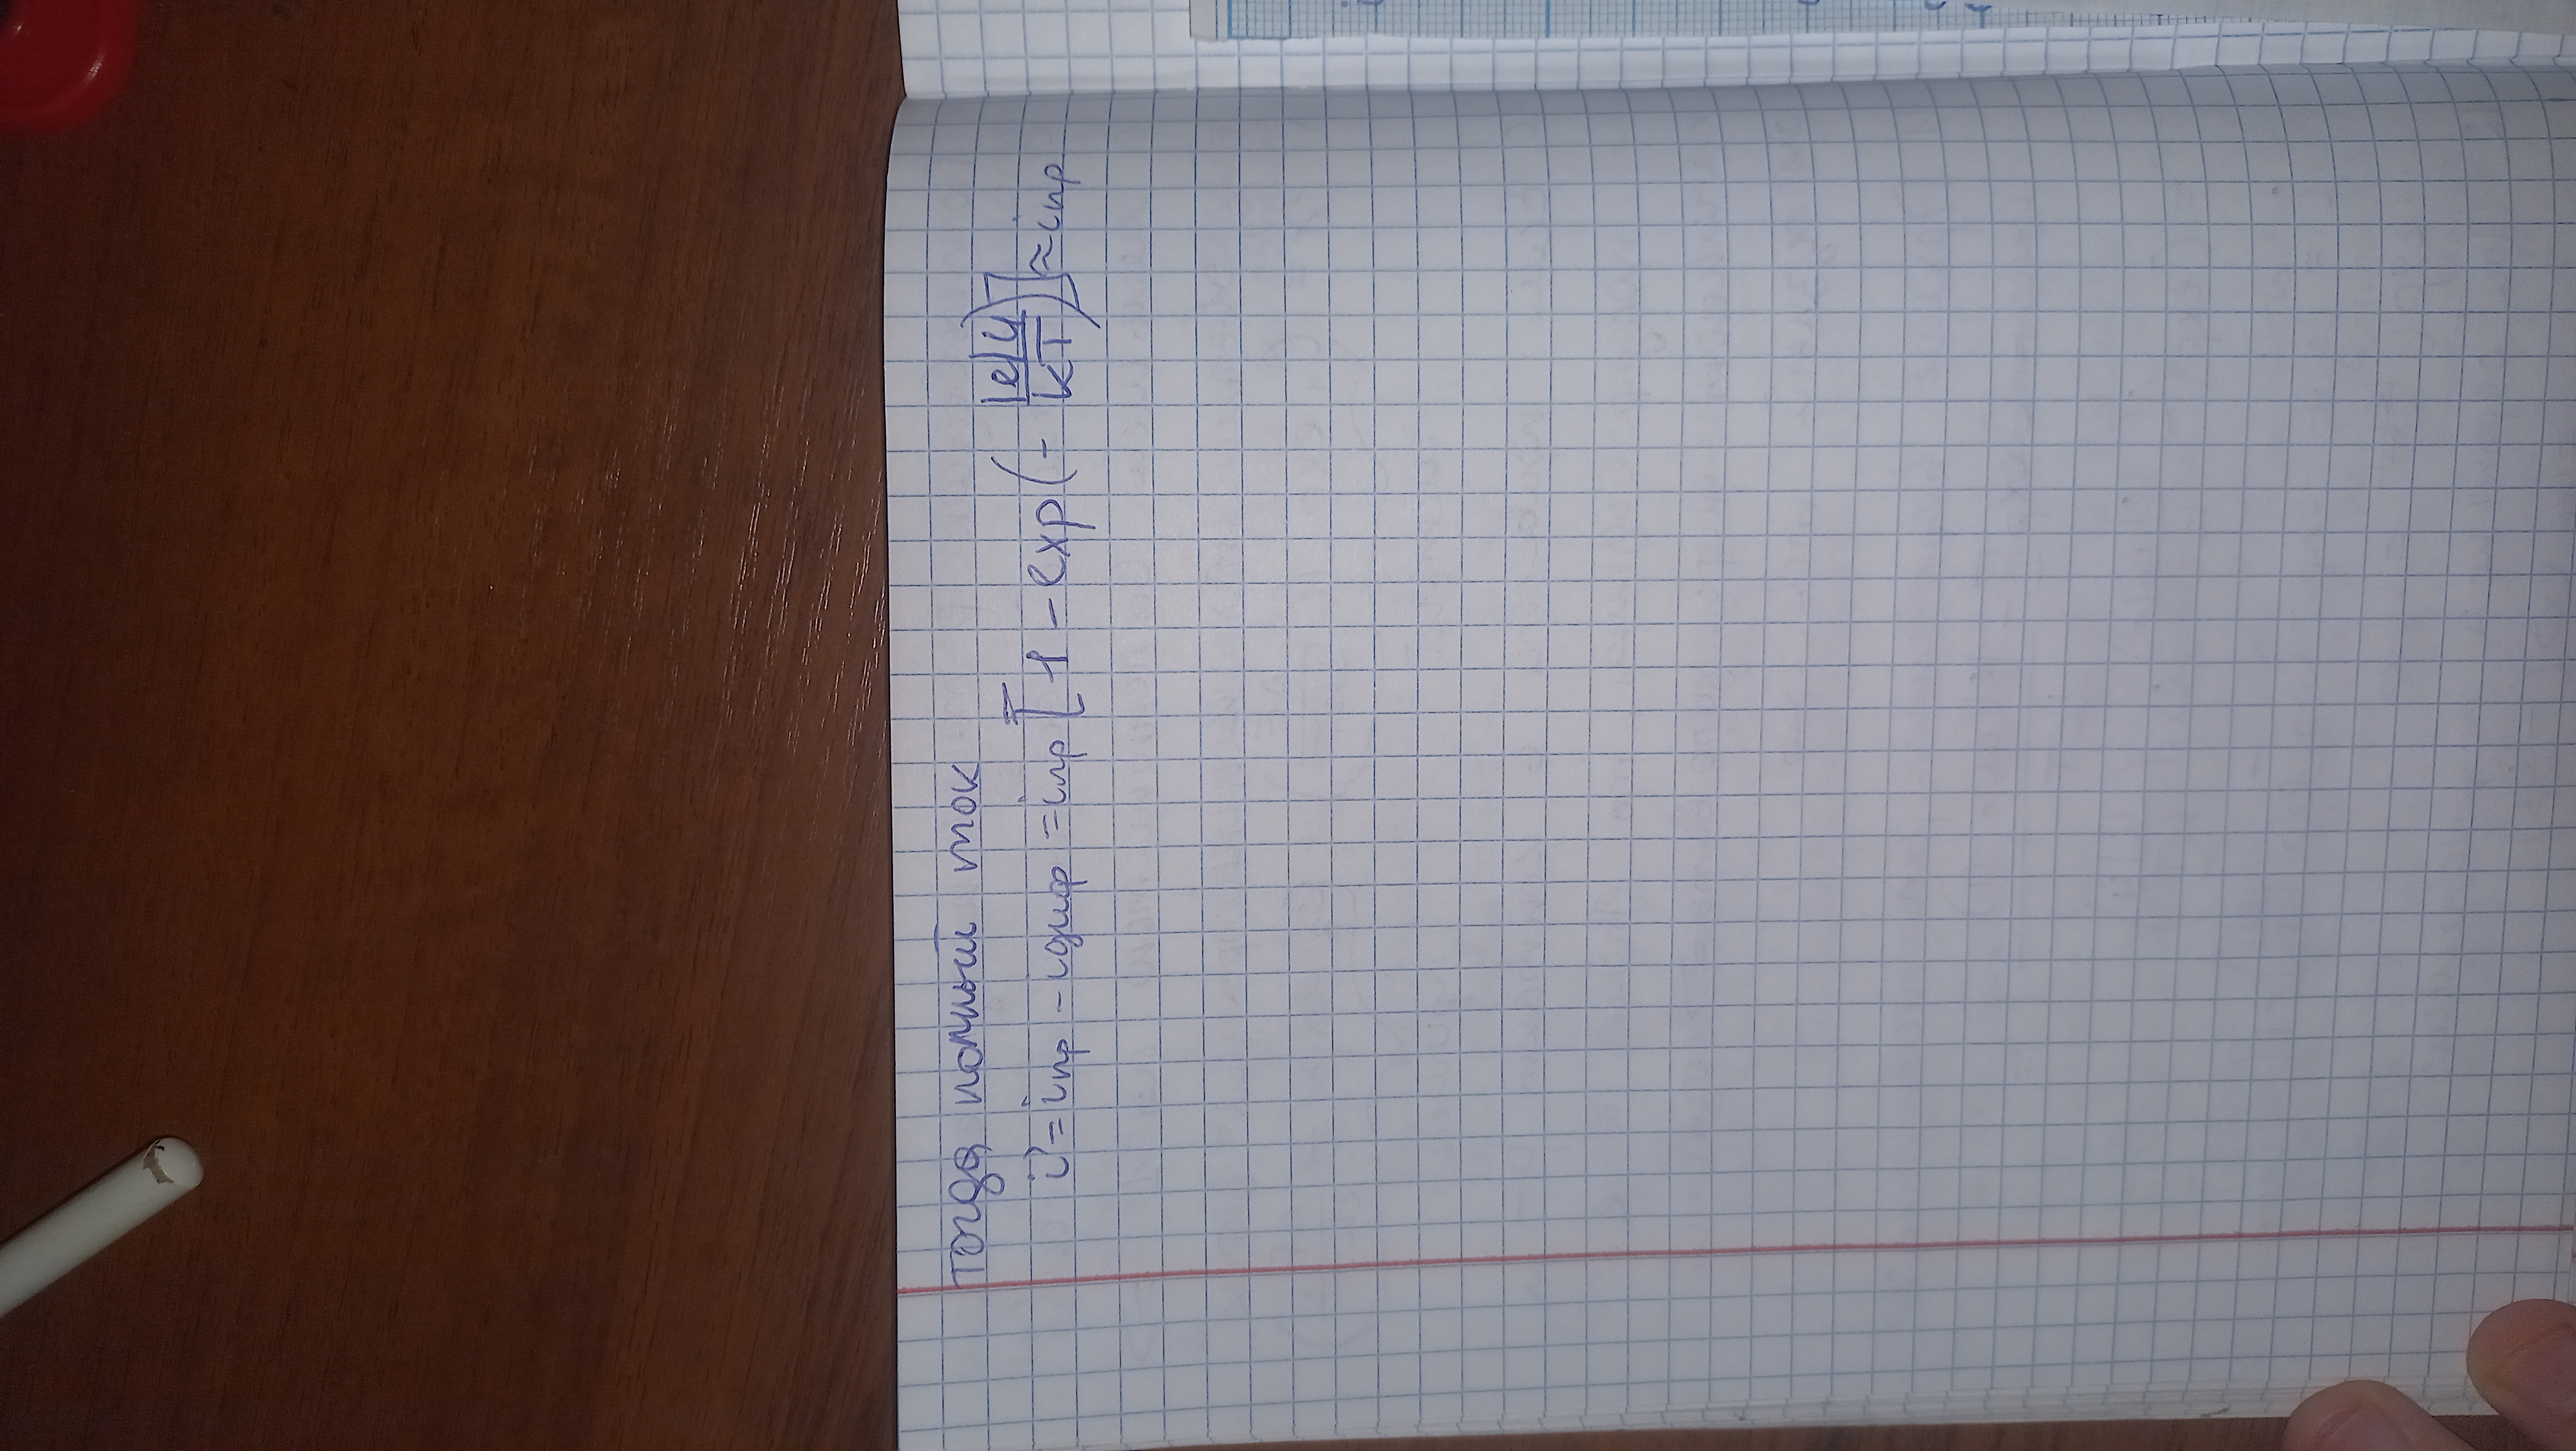 тогда полный ток
i = iпр - iдиф = iпр [1 - exp(- |e|U / kT)] ≈ iпр